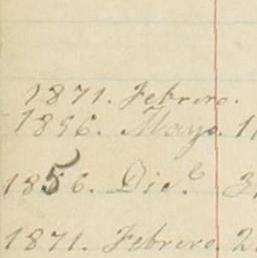 1871. Febrero.
1856. Mayo. 1
1856. Dic.e 3
1871. Febrero. 2